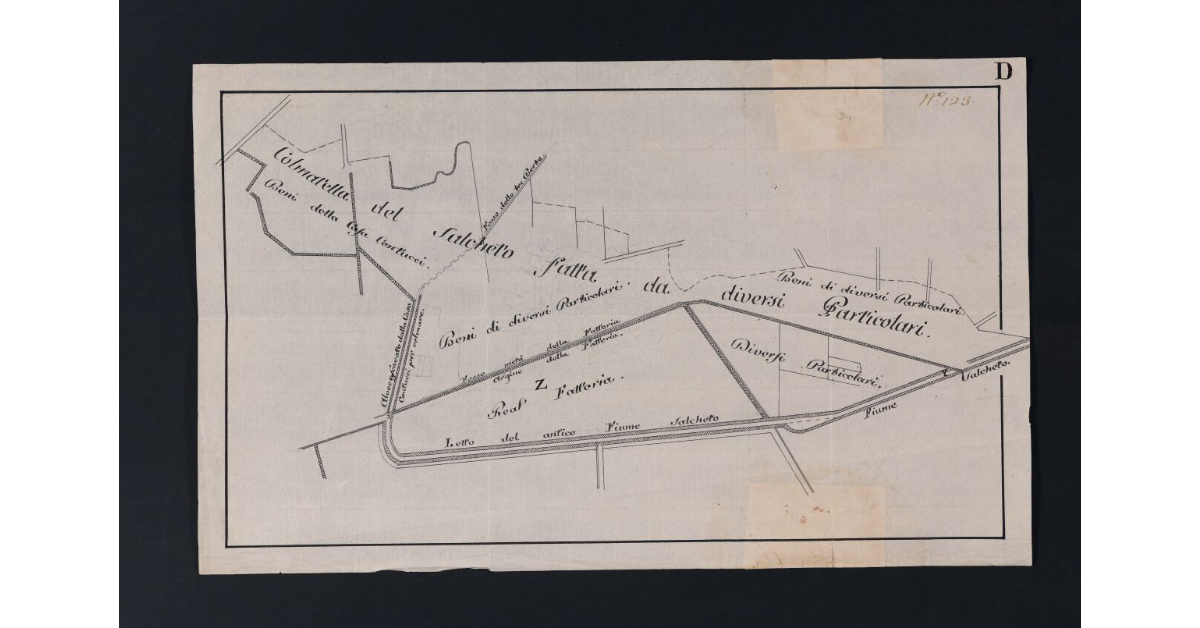 D
N.º 123.
Colmatella del Salcheto fatta da diversi Particolari.
Beni della Casa Contucci.
Fosso delle tre Berte
Beni di diversi Particolari.
Beni di diversi Particolari.
Alveo
dalla Casa
Contucci per colmare.
Fosso metà della Fattoria
Argine della Fattoria.
Z
Real Fattoria.
Diversi Particolari.
Letto del antico Fiume Salcheto
Fiume Salcheto.